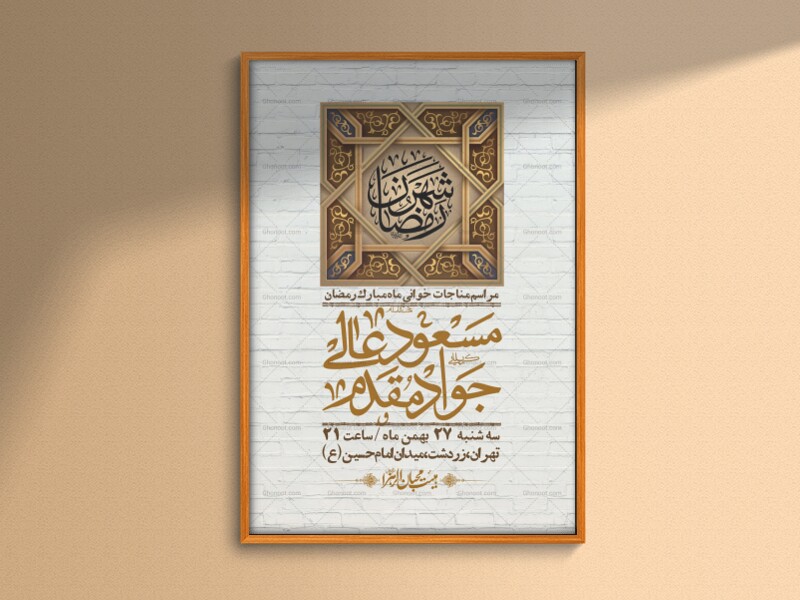 شهر رمضان
مراسم مناجات خوانی ماه مبارک رمضان
مسعود عالی
کربلایی
جواد مقدم
سه شنبه ۲۷ بهمن ماه / ساعت ۲۱
تهران، زردشت، میدان امام حسین (ع)
هیئت محبان الزهرا
Ghonoot.com